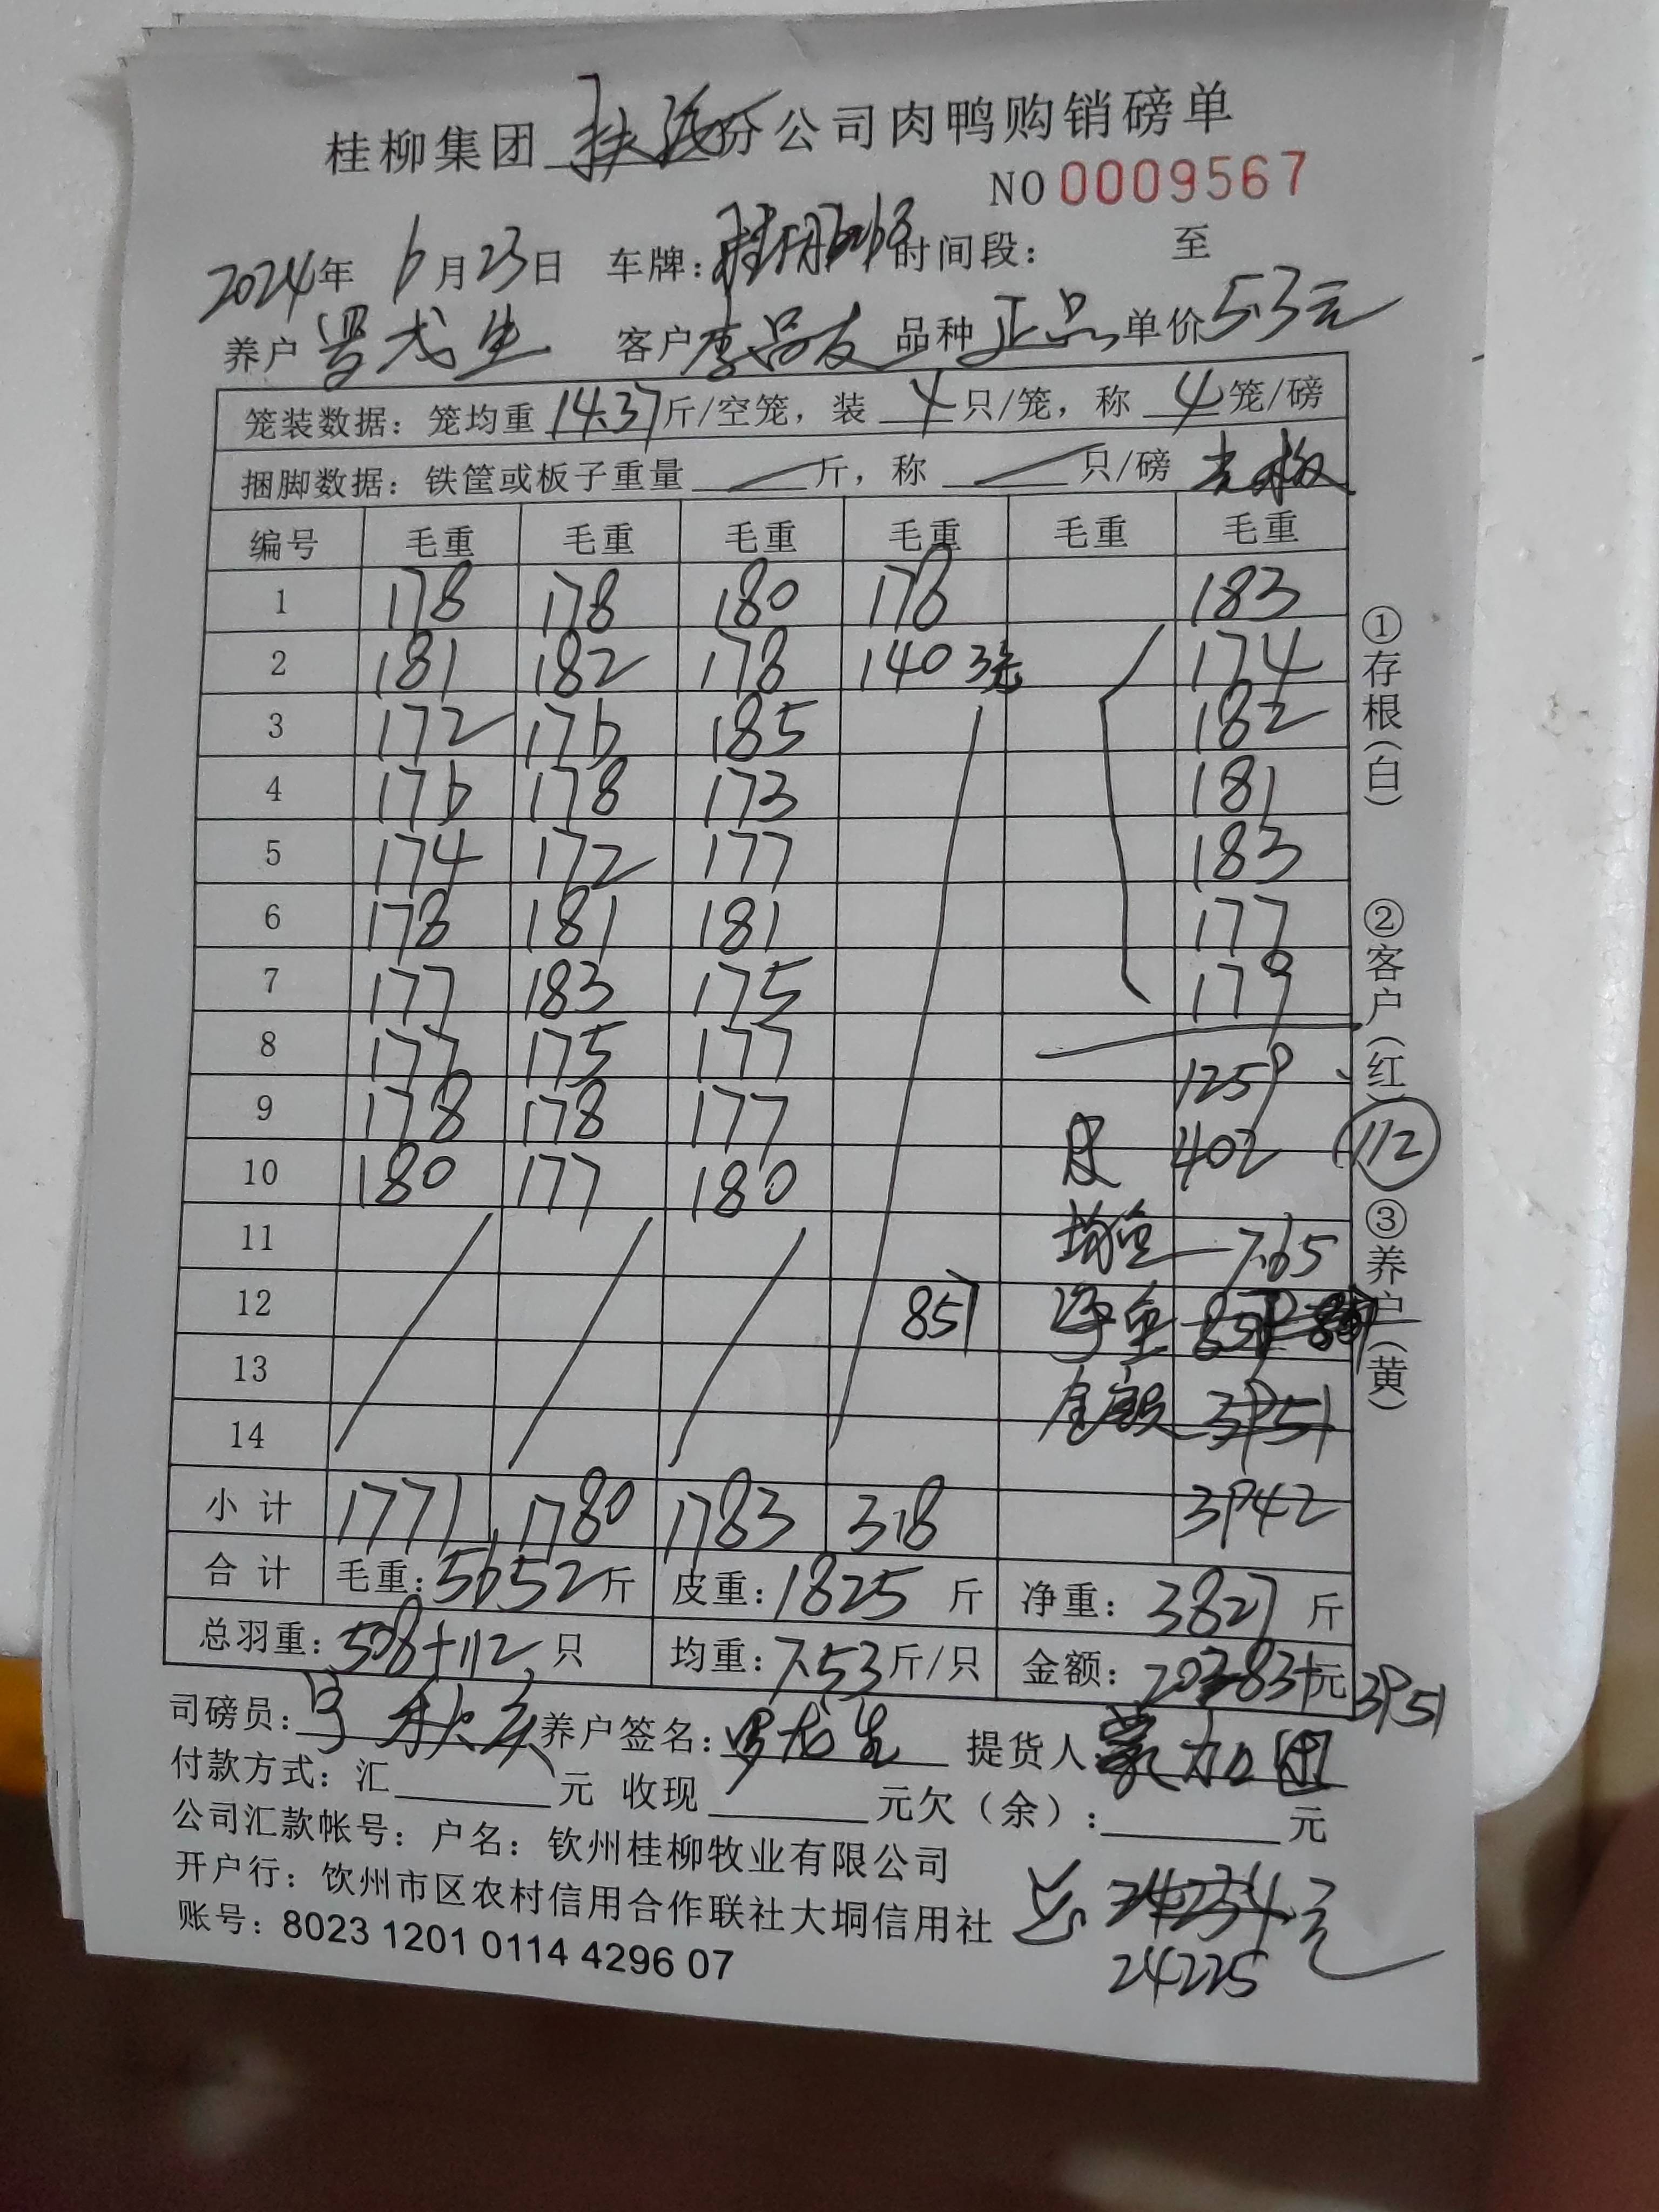 桂柳集团 扶绥分公司肉鸭购销磅单
NO 0009567
2024年 6月23日 车牌: 时间段: 至
养户 罗戈生 客户 李品友 品种 正品 单价 5.3元
笼装数据: 笼均重 14.37 斤/空笼, 装 4 只/笼, 称 4 笼/磅
捆脚数据: 铁筐或板子重量 斤, 称 只/磅
编号 毛重 毛重 毛重 毛重 毛重 毛重
1 178 178 180 178 183
2 181 182 178 140 3笼 174
3 172 176 185 182
4 176 178 173 181
5 174 172 177 183
6 178 181 181 177
7 177 183 175 179
8 177 175 177 1259
9 178 178 177 皮 402 112
10 180 177 180
11 均重 7.65
12 857 净重
13 金额 3951
14
小计 1771 1780 1783 318 3942
合计 毛重: 5652 斤 皮重: 1825 斤 净重: 3827 斤
总羽重: 508+112 只 均重: 7.53 斤/只 金额: 20283+ 元 3951
司磅员: 养户签名: 提货人
付款方式: 汇 元 收现 元欠(余): 元
公司汇款帐号: 户名: 钦州桂柳牧业有限公司
开户行: 饮州市区农村信用合作联社大垌信用社
总 24234元
账号: 8023 1201 0114 4296 07
24225
①存根(白)
②客户(红)
③养户(黄)